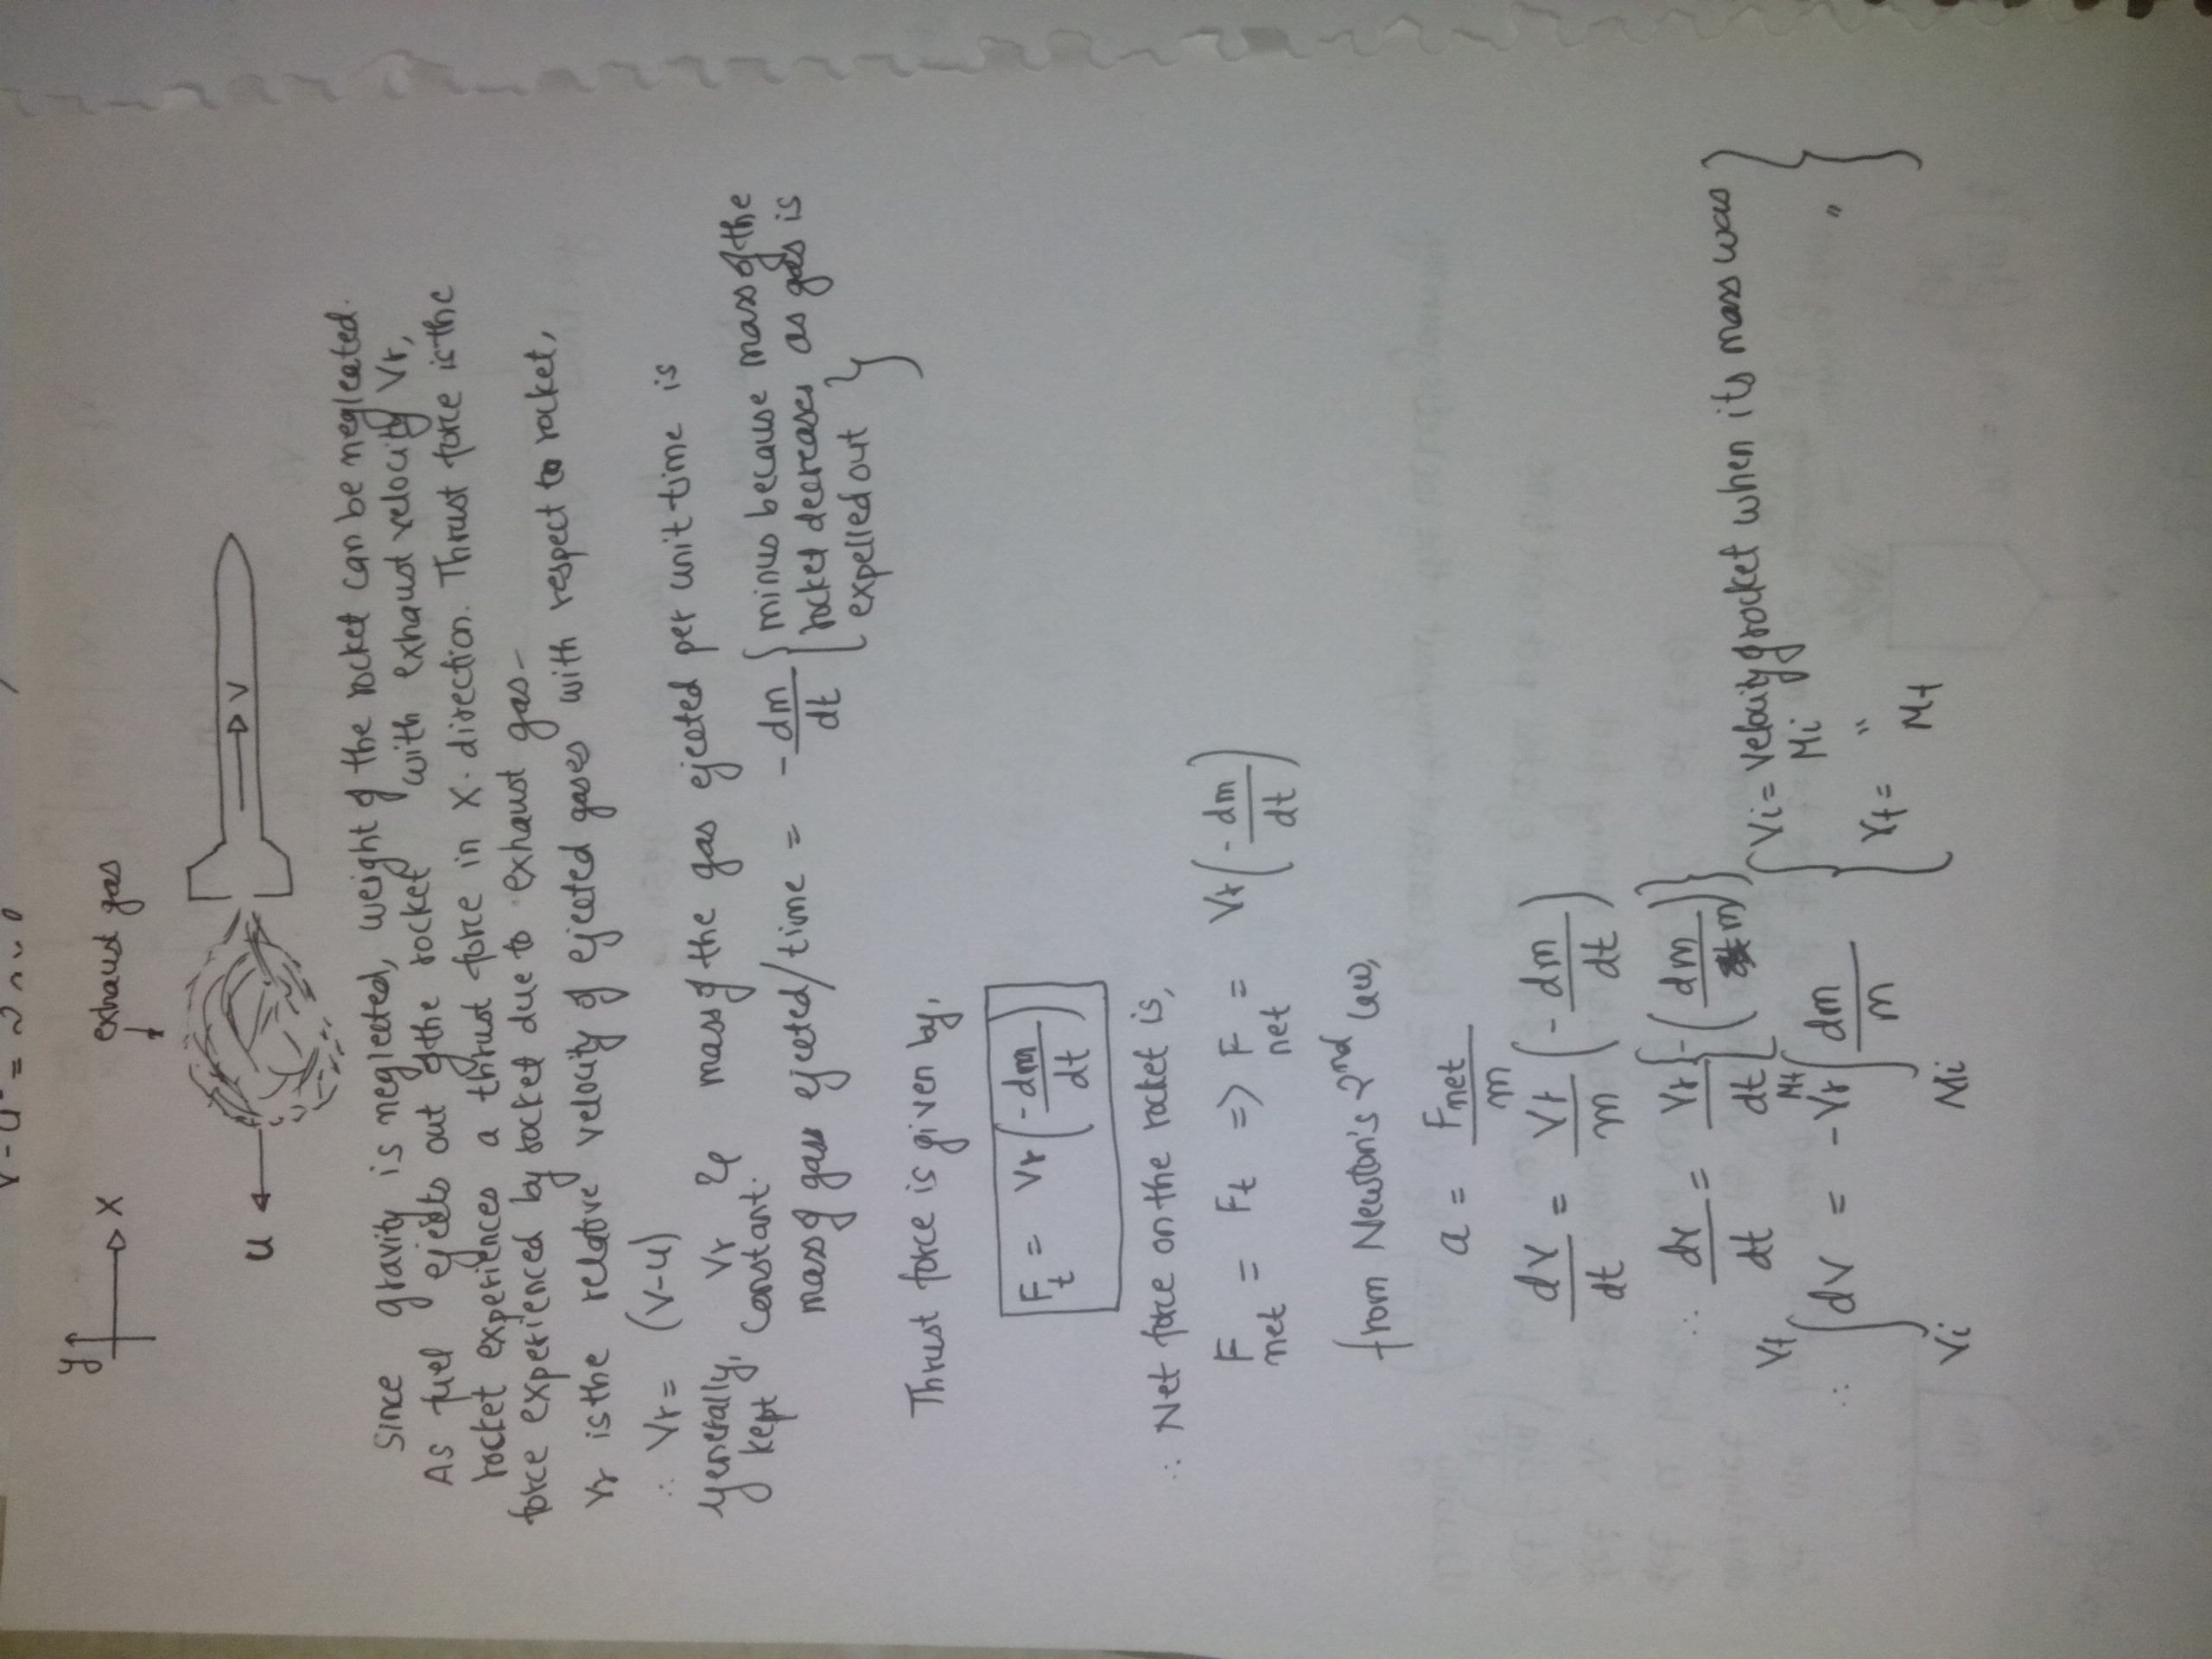 y
X
exhaust gas
u
v
Since gravity is neglected, weight of the rocket can be neglected.
As fuel ejects out of the rocket with exhaust velocity Vr,
rocket experiences a thrust force in X-direction. Thrust force is the
force experienced by rocket due to exhaust gas-
Vr is the relative velocity of ejected gases with respect to rocket,
∴ Vr = (v-u)
Generally, Vr & mass of the gas ejected per unit time is
kept constant.
mass of gas ejected/time = -dm/dt {minus because mass of the
rocket decreases as gas is
expelled out}
Thrust force is given by,
Ft = Vr(-dm/dt)
∴ Net force on the rocket is,
Fnet = Ft => Fnet = Vr(-dm/dt)
from Newton's 2nd law,
a = Fnet/m
dv/dt = Vr/m (-dm/dt)
∴ dv/dt = Vr/dt {-(dm/m)}
∴ ∫ Vi Vf dv = -Vr ∫ Mi Mf dm/m
{Vi = velocity of rocket when its mass was
Mi}
{Vf = " "
Mf}